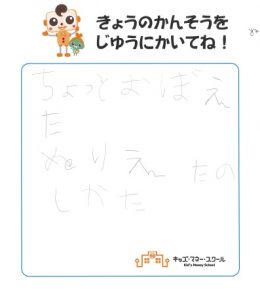 きょうのかんそうを
じゆうにかいてね！
ちょっとおぼえ
た
ぬりえ たの
しかた
キッズ・マネー・スクール
Kid's Money School